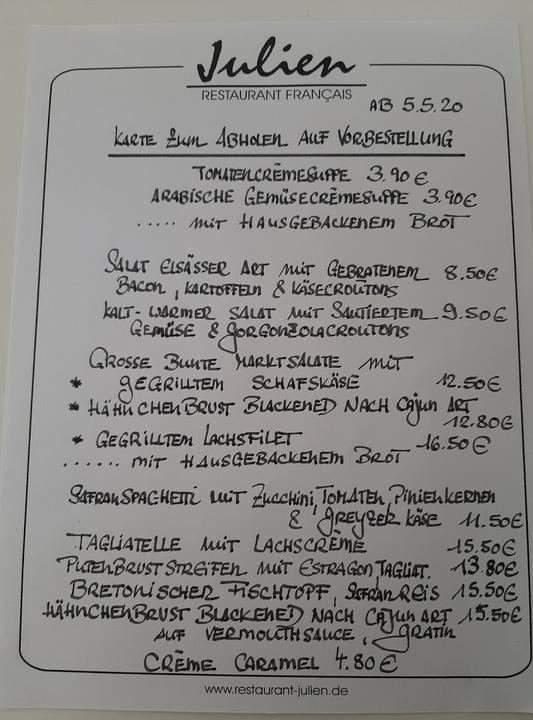 Julien
RESTAURANT FRANÇAIS
AB 5.5.20
KARTE ZUM ABHOLEN AUF VORBESTELLUNG
TOMATENCRÈMESUPPE 3.90 €
ARABISCHE GEMÜSECRÈMESUPPE 3.90€
..... MIT HAUSGEBACKENEM BROT
SALAT ELSÄSSER ART MIT GEBRATENEM 8.50€
BACON, KARTOFFELN & KÄSECROUTONS
KALT-WARMER SALAT MIT SAUTIERTEM 9.50€
GEMÜSE & GORGONZOLACROUTONS
GROSSE BUNTE MARKTSALATE MIT
* GEGRILLTEM SCHAFSKÄSE 12.50€
* HÄHNCHENBRUST BLACKENED NACH CAJUN ART
12.80€
* GEGRILLTEM LACHSFILET 16.50€
...... MIT HAUSGEBACKENEM BROT
SAFRANSPAGHETTI MIT ZUCCHINI, TOMATEN, PINIENKERNEN
& GREYZER KÄSE 11.50€
TAGLIATELLE MIT LACHSCRÈME 15.50€
PUTENBRUSTSTREIFEN MIT ESTRAGON, TAGLIAT. 13.80€
BRETONISCHER FISCHTOPF, SAFRANREIS 15.50€
HÄHNCHENBRUST BLACKENED NACH CAJUN ART 15.50€
AUF VERMOUTHSAUCE, GRATIN
CRÈME CARAMEL 4.80€
www.restaurant-julien.de